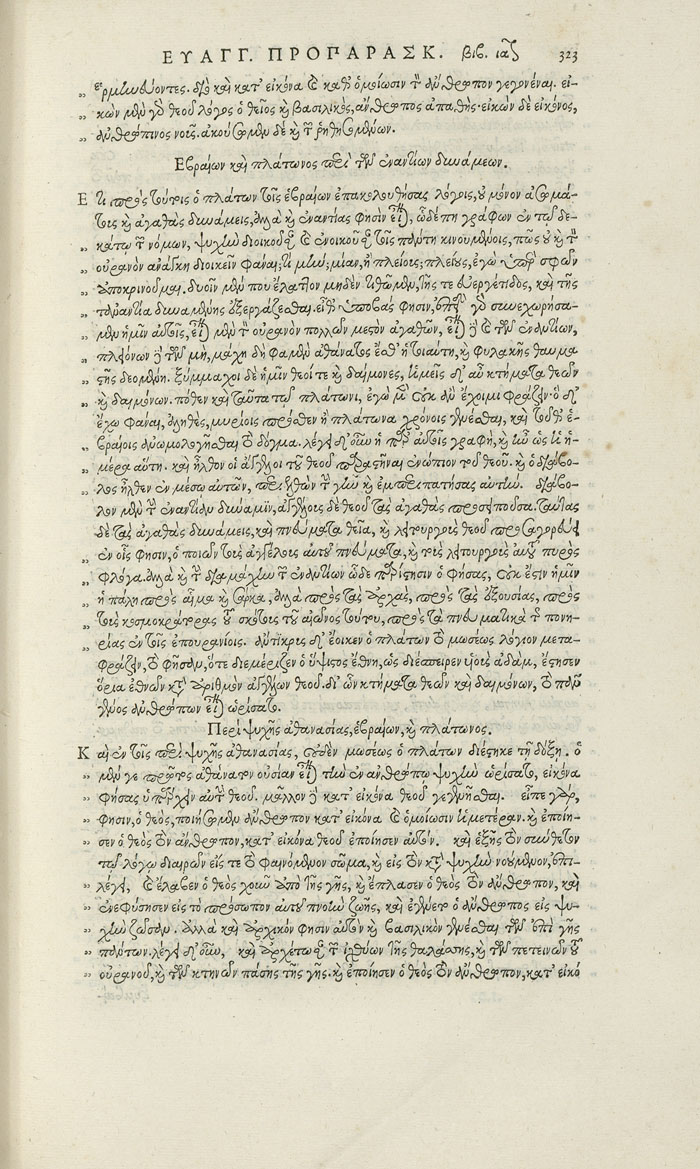 ΕΥΑΓΓ. ΠΡΟΠΑΡΑΣΚ. βιβ. ιαʹ 323
ἑρμηνεύοντες. διὸ καὶ κατ' εἰκόνα καὶ καθ' ὁμοίωσιν τὸν ἄνθρωπον γεγονέναι. εἰ-
κὼν μὲν γὸ θεοῦ λόγος ὁ θεῖος καὶ βασιλικὸς, ἄνθρωπος ἀπαθής· εἰκὼν δὲ εἰκόνος,
ἀνθρώπινος νοῦς. ἀκούσωμεν δὲ καὶ τῶν ῥηθησομένων.
Εβραίων καὶ πλάτωνος περὶ τῶν ἐναντίων δυνάμεων.
Ετι πρὸς τούτοις ὁ πλάτων τοῖς ἑβραίων ἐπακολουθήσας λόγοις, οὐ μόνον ἀσωμά-
τοις καὶ ἀγαθὰς δυνάμεις, ἀλλὰ καὶ ἐναντίας φησὶν εἶναι, ὧδέ πη γράφων ἐν τῷ δε-
κάτῳ τῶν νόμων, ψυχὴν διοικοῦσαν καὶ ἐνοικοῦσαν τοῖς πάντη κινουμένοις, πῶς οὐ καὶ τὸν
οὐρανὸν ἀνάγκη διοικεῖν φάναι; τί μήν; μίαν, ἢ πλείους; πλείους, ἐγὼ ὑπὲρ σφῶν
ἀποκρινοῦμαι. δυοῖν μέν που ἔλαττον μηδὲν τιθῶμεν, τῆς τε εὐεργέτιδος, καὶ τῆς
τἀναντία δυναμένης ἐξεργάζεσθαι. εἶθ' ὑποβάς φησιν, ἐπεὶ γὸ συνεχωρήσα-
μεν ἡμῖν αὐτοῖς, εἶναι μὲν τὸν οὐρανὸν πολλῶν μεστὸν ἀγαθῶν, εἶναι δὲ καὶ τῶν ἐναντίων,
πλειόνων δὲ τῶν μὴ, μάχη δή φαμεν ἀθάνατος ἐσθ' ἡ τοιαύτη, καὶ φυλακῆς θαυμα
στῆς δεομένη. ξύμμαχοι δὲ ἡμῖν θεοί τε καὶ δαίμονες, ἡμεῖς δ' αὖ κτήματα θεῶν
καὶ δαιμόνων. πόθεν καὶ ταῦτα τῷ πλάτωνι, ἐγὼ μὲν οὐκ ἂν ἔχοιμι φράζειν. ὃ δ'
ἔχω φάναι, ἀληθὲς, μυρίοις πρόσθεν ἢ πλάτωνα χρόνοις γενέσθαι, καὶ τοῦθ' ἑ-
βραίοις ἀνωμολογῆσθαι τὸ δόγμα. λέγει δ' οὖν ἡ παρ' αὐτοῖς γραφή, καὶ ἦν ὡς ἡ ἡ-
μέρα αὕτη. καὶ ἦλθον οἱ ἄγγελοι τοῦ θεοῦ παραστῆναι ἐνώπιον τοῦ θεοῦ. καὶ ὁ διάβο-
λος ἦλθεν ἐν μέσῳ αὐτῶν, περιελθὼν τὴν γῆν καὶ ἐμπεριπατήσας αὐτήν. διάβο-
λον μὲν τὴν ἐναντίαν δύναμιν, ἀγγέλους δὲ θεοῦ τὰς ἀγαθὰς προσειποῦσα. ταύτας
δὲ τὰς ἀγαθὰς δυνάμεις, καὶ πνεύματα θεῖα, καὶ λειτουργοὺς θεοῦ προσαγορεύει
ἐν οἷς φησιν, ὁ ποιῶν τοὺς ἀγγέλους αὐτοῦ πνεύματα, καὶ τοὺς λειτουργοὺς αὐτοῦ πυρὸς
φλόγα. ἀλλὰ καὶ τὴν διαμάχην τῶν ἐναντίων ὧδε παρίστησιν ὁ φήσας, οὐκ ἔστιν ἡμῖν
ἡ πάλη πρὸς αἷμα καὶ σάρκα, ἀλλὰ πρὸς τὰς ἀρχὰς, πρὸς τὰς ἐξουσίας, πρὸς
τοὺς κοσμοκράτορας τοῦ σκότους τοῦ αἰῶνος τούτου, πρὸς τὰ πνευματικὰ τῆς πονη-
ρίας ἐν τοῖς ἐπουρανίοις. ἄντικρις δ' ἔοικεν ὁ πλάτων τὸ μωσέως λόγιον μετα-
φράζειν, τὸ φῆσαν, ὅτε διεμέριζεν ὁ ὕψιστος ἔθνη, ὡς διέσπειρεν υἱοὺς ἀδὰμ, ἔστησεν
ὅρια ἐθνῶν κατὰ ἀριθμὸν ἀγγέλων θεοῦ. δι' ὧν κτήματα θεῶν καὶ δαιμόνων, τὸ πᾶν
γένος ἀνθρώπων εἶναι ὡρίσατο.
Περὶ ψυχῆς ἀθανασίας, ἑβραίων, καὶ πλάτωνος.
Καὶ ἐν τοῖς περὶ ψυχῆς ἀθανασίας, οὐδὲν μωσέως ὁ πλάτων διέστηκε τῇ δόξῃ. ὁ
μέν γε πρῶτος ἀθάνατον οὐσίαν εἶναι τὴν ἐν ἀνθρώπῳ ψυχὴν ὡρίσατο, εἰκόνα
φήσας ὑπάρχειν αὐτὴν θεοῦ. μᾶλλον δὲ κατ' εἰκόνα θεοῦ γεγενῆσθαι. εἶπε γὰρ,
φησιν, ὁ θεὸς, ποιήσωμεν ἄνθρωπον κατ' εἰκόνα καὶ ὁμοίωσιν ἡμετέραν. καὶ ἐποίη-
σεν ὁ θεὸς τὸν ἄνθρωπον, κατ' εἰκόνα θεοῦ ἐποίησεν αὐτόν. καὶ ἑξῆς τὸν σύνθετον
τῷ λόγῳ διαιρῶν εἴς τε τὸ φαινόμενον σῶμα, καὶ εἰς τὸν κατὰ ψυχὴν νοούμενον, ἐπι-
λέγει, καὶ ἔλαβεν ὁ θεὸς χοῦν ἀπὸ τῆς γῆς, καὶ ἔπλασεν ὁ θεὸς τὸν ἄνθρωπον, καὶ
ἐνεφύσησεν εἰς τὸ πρόσωπον αὐτοῦ πνοὴν ζωῆς, καὶ ἐγένετο ὁ ἄνθρωπος εἰς ψυ-
χὴν ζῶσαν. ἀλλὰ καὶ ἀρχικόν φησιν αὐτὸν καὶ βασιλικὸν γενέσθαι τῶν ἐπὶ γῆς
πάντων. λέγει δ' οὖν, καὶ ἀρχέτωσαν τῶν ἰχθύων τῆς θαλάσσης, καὶ τῶν πετεινῶν τοῦ
οὐρανοῦ, καὶ τῶν κτηνῶν πάσης τῆς γῆς. καὶ ἐποίησεν ὁ θεὸς τὸν ἄνθρωπον, κατ' εἰκό